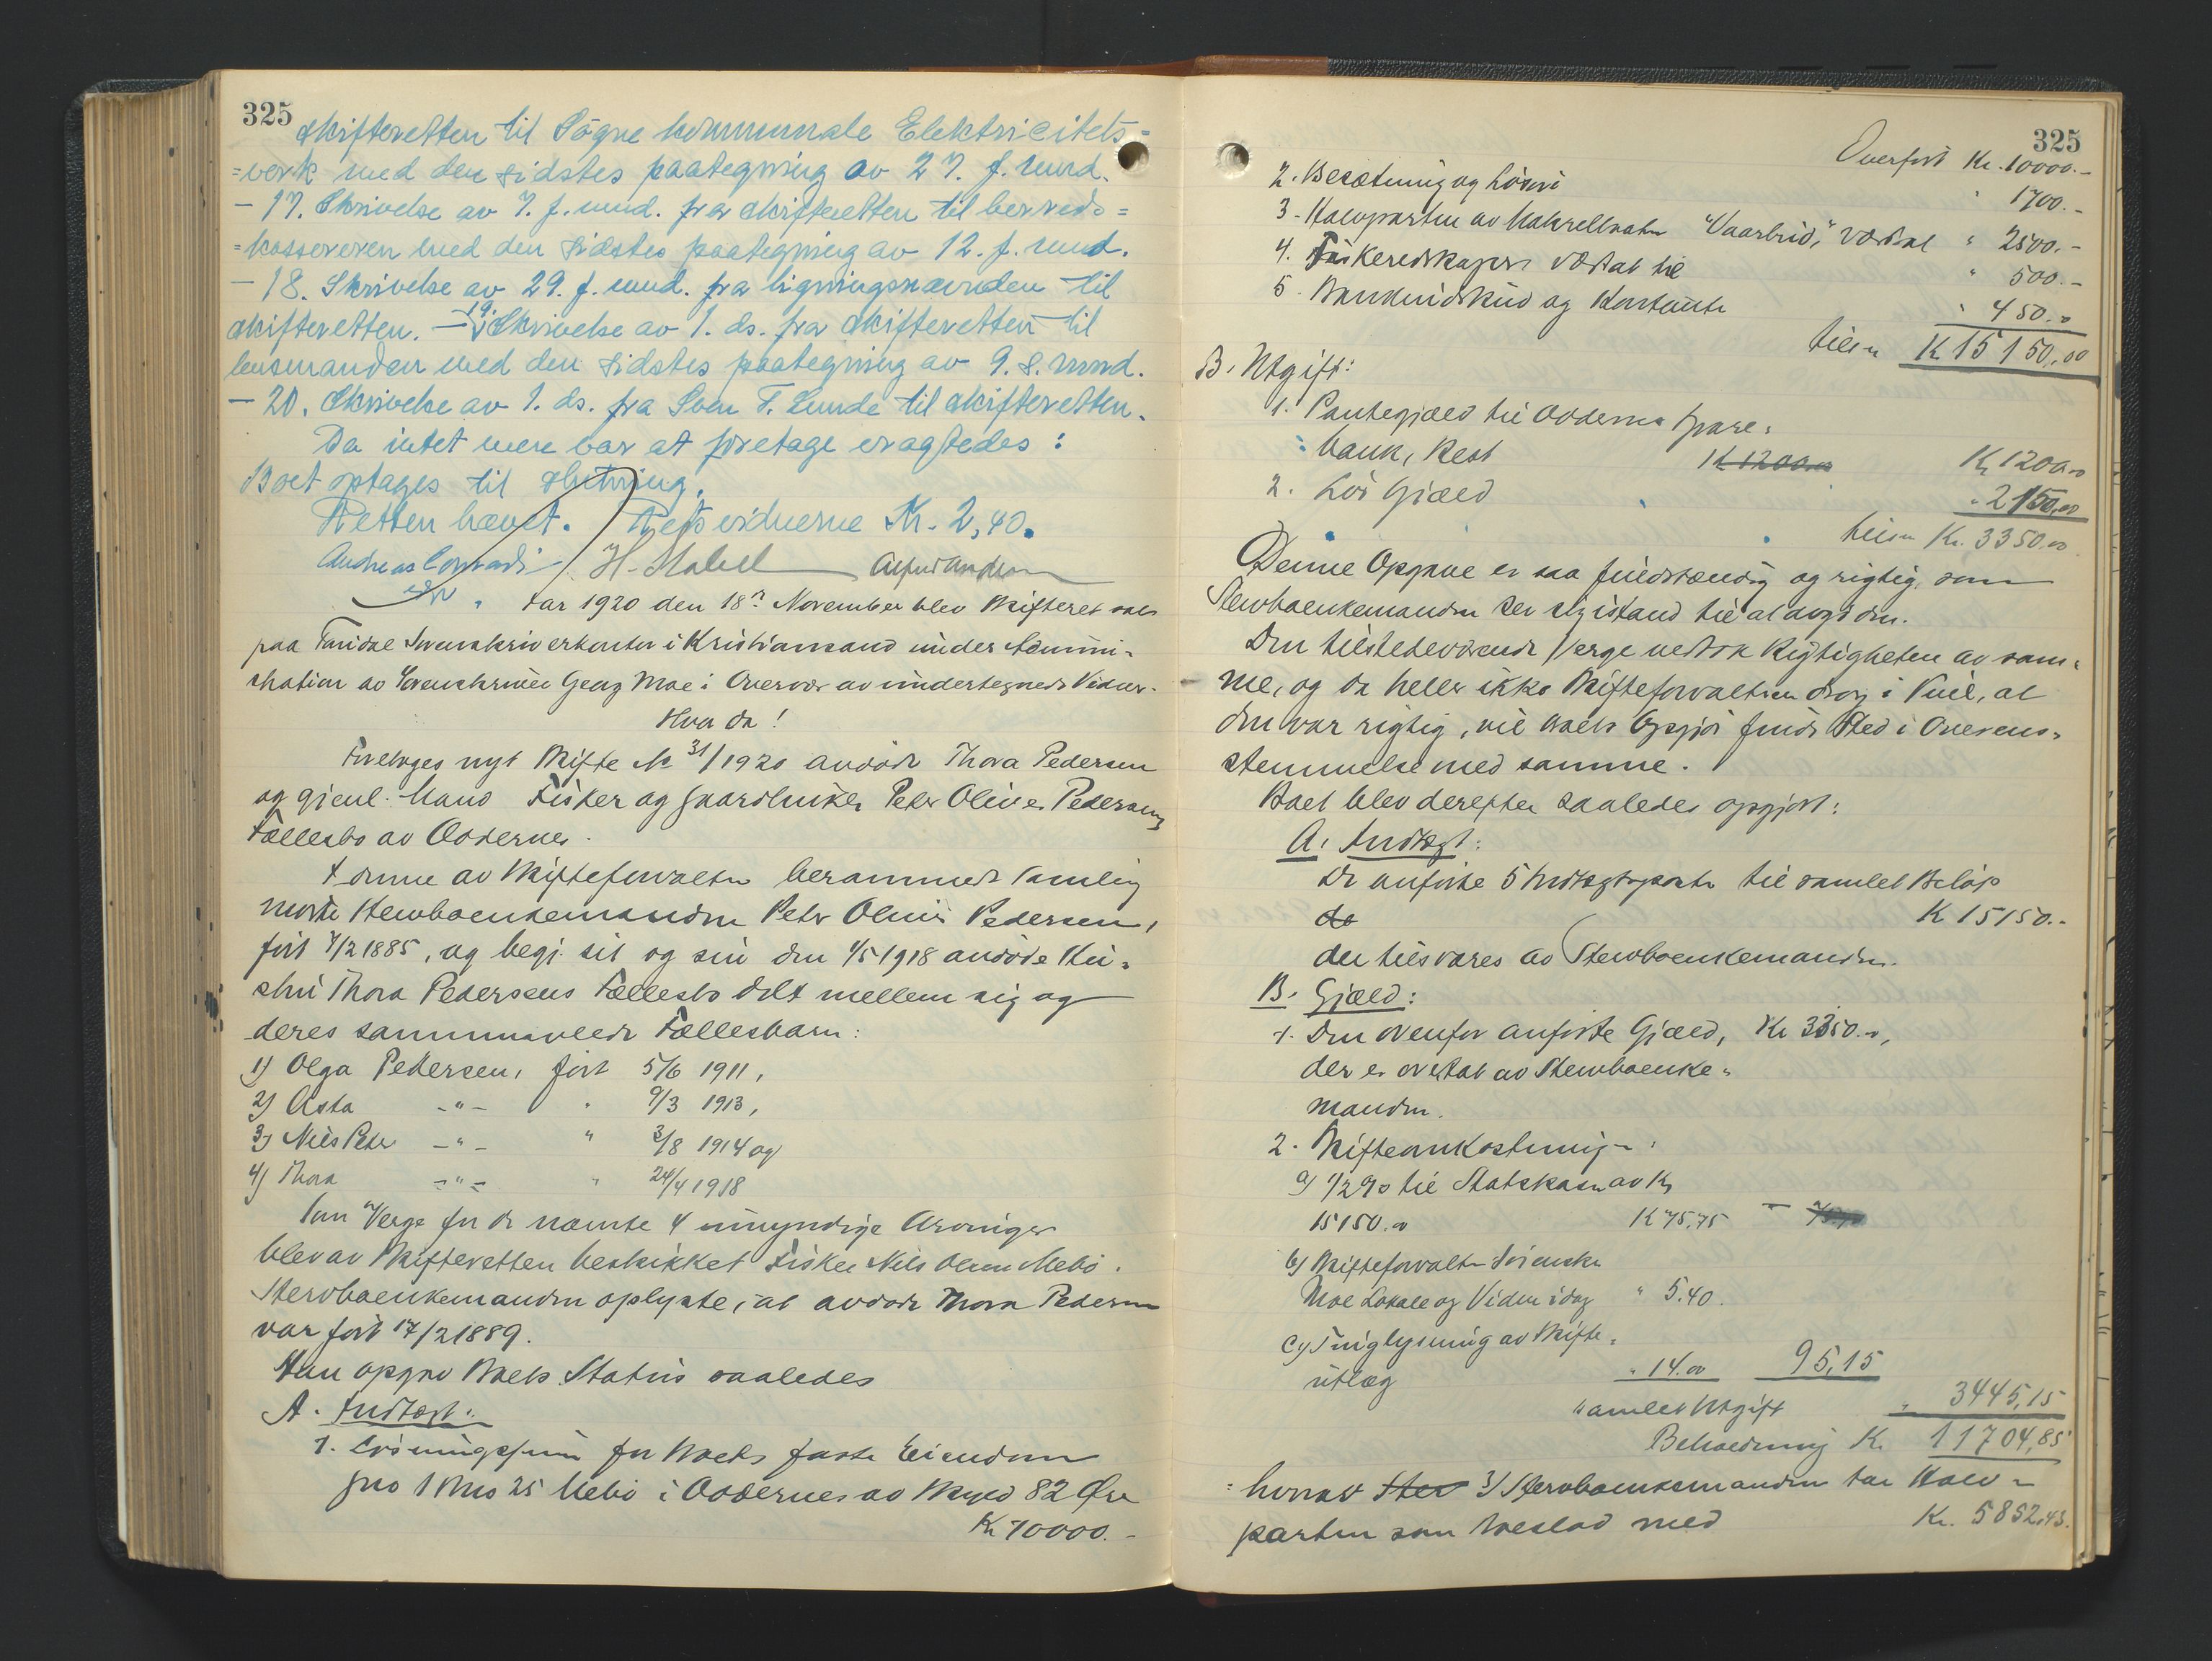 325
skifteretten til Søgne kommunale Elektricitets=
=verk med den sidstes paategning av 27. f. mnd.
- 17. Skrivelse av 7. f. mnd. fra skifteretten til herreds=
=kassereren med den sidstes paategning av 12. f. mnd.
- 18. Skrivelse av 29. f. mnd. fra ligningsnævnden til
skifteretten. - 19. Skrivelse av 1. ds. fra skifteretten til
lensmanden med den sidstes paategning av 9. s. mnd.
- 20. Skrivelse av 1. ds. fra Sven T. Lunde til skifteretten.
Da intet mere var at foretage eragtedes:
Boet optages til slutning.
Retten hævet. Retsvidnerne Kr. 2,40.
Andreas Conradi H. Stabel Alfred Andersen
Aar 1920 den 18de November blev Skifteret sat
paa Sorenskriverkontor i Kristiansand under Admini-
stration av Sorenskriver Georg Moe i Overvær av undertegnede Vidner.
Hvor da!
Foretages nyt Skifte No 31/1920 avdøde Thora Pedersen
og gjenl. Mand Fisker og Gaardbruker Peter Oliver Pedersens
Fællesbo av Oddernes.
I denne av Skifteforvalteren berammede Samling
mødte Stervboenkemanden Peter Oliver Pedersen,
født 4/2 1885, og begj. sit og sin den 1/5 1918 avdøde Hu-
stru Thora Pedersens Fællesbo delt mellem sig og
deres sammenavlede Fællesbarn:
1) Olga Pedersen, født 5/6 1911,
2) Asta -"- " 9/3 1913,
3) Nils Peter -"- " 3/8 1914 og
4) Thora -"- " 24/4 1918
Som Verge for de nævnte 4 umyndige Arvinger
blev av Skifteretten beskikket Fisker Nils Olsen Mebø.
Stervboenkemanden oplyste, at avdøde Thora Pedersen
var født 17/2 1889.
Han opgav Boets Status saaledes
A. Indtægt:
1. Løsningssum for Boets faste Eiendom
Gno 1 Bno 25 Mebø i Oddernes av Skyld 82 Øre
Kr 10000.-
325
Overført Kr. 10000.-
2. Besætning og Løsøre " 1700.-
3. Halvparten av Makrelbaaten "Vaarbrud," værdsat " 2500.-
4. Fiskeredskaper værdsat til " 500.-
5. Bankindskud og Kontanter " 450.00
tilsn K 15150,00
B. Utgift:
1. Pantegjæld til Oddernes Spare-
bank, Rest K 1200.00 K 1200.00
2. Løs Gjæld " 2150,00
tilsn Kr. 3350.00
Denne Opgave er saa fuldstændig og rigtig, som
Stervboenkemanden ser sig istand til at avgi den.
Den tilstedeværende Verge vedtok Rigtigheten av sam-
me, og da heller ikke Skifteforvalteren drog i Tvil, at
den var rigtig, vil Boets Opgjør finde Sted i Overens-
stemmelse med samme.
Boet blev derefter saaledes opgjort:
A. Indtægt:
De anførte 5 Indtægtsposter til samlet Beløp
de K 15150.-
der tilsvares av Stervboenkemanden.
B. Gjæld:
1. Den ovenfor anførte Gjæld, Kr 3350.00,
der er overtat av Stervboenke-
manden.
2. Skifteomkostninger:
a) 1/2 % til Statskassen av Kr
15150.00 K 75.75
b) Skifteforvalter Sorenskr.
Moe Lokale og Vidner idag " 5.40.
c) Tinglysning av Skifte-
utlæg " 14.00 95,15
samlet Utgift " 3445,15
Beholdning K. 11704,85
hvorav Ster 3/ Stervboenkemanden tar Halv-
parten som Boeslod med Kr. 5852,43.